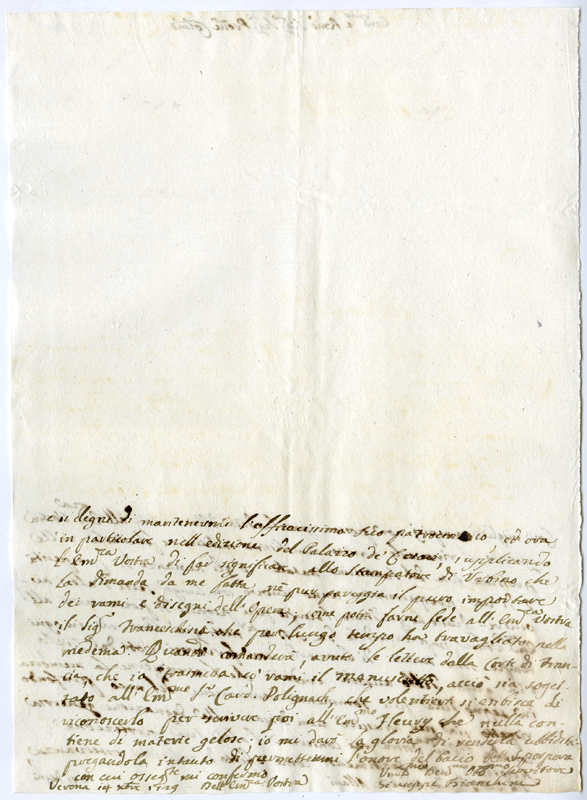 e si degni di mantenermi l'efficacissimo suo patrocinio ed ora
in particolare nell'edizione del Palazzo de' Cesari, supplicando
l'Em.za Vostra di far significare allo Stampatore di Urbino che
la dimanda da me fatta non può pareggia il puro importare
dei rami e disegni dell'Opera; come potrà farne fede all'Em.za Vostra
il Sig. Francechini che per lungo tempo ha travagliato nelle
medema. Quando comanderà, avute le lettere dalla Corte di Fran-
cia, che io trasmetta co' rami il manuscritto, acciò sia sogget-
tato all'Em.mo Sr. Card. Polignach, che volentieri si esibisce di
riconoscerlo per scrivere poi all'Em.mo Fleury che nulla con-
tiene di materie gelose; io mi darò la gloria di renderla ubbidita
pregandola intanto di permettermi l'onore del baccio della porpora
con cui osseq.te mi confermo
Verona 14 xbre 1729 Dell'Em.za Vostra
Um.o Dev.mo Obb. Servitore
Giuseppe Bianchini